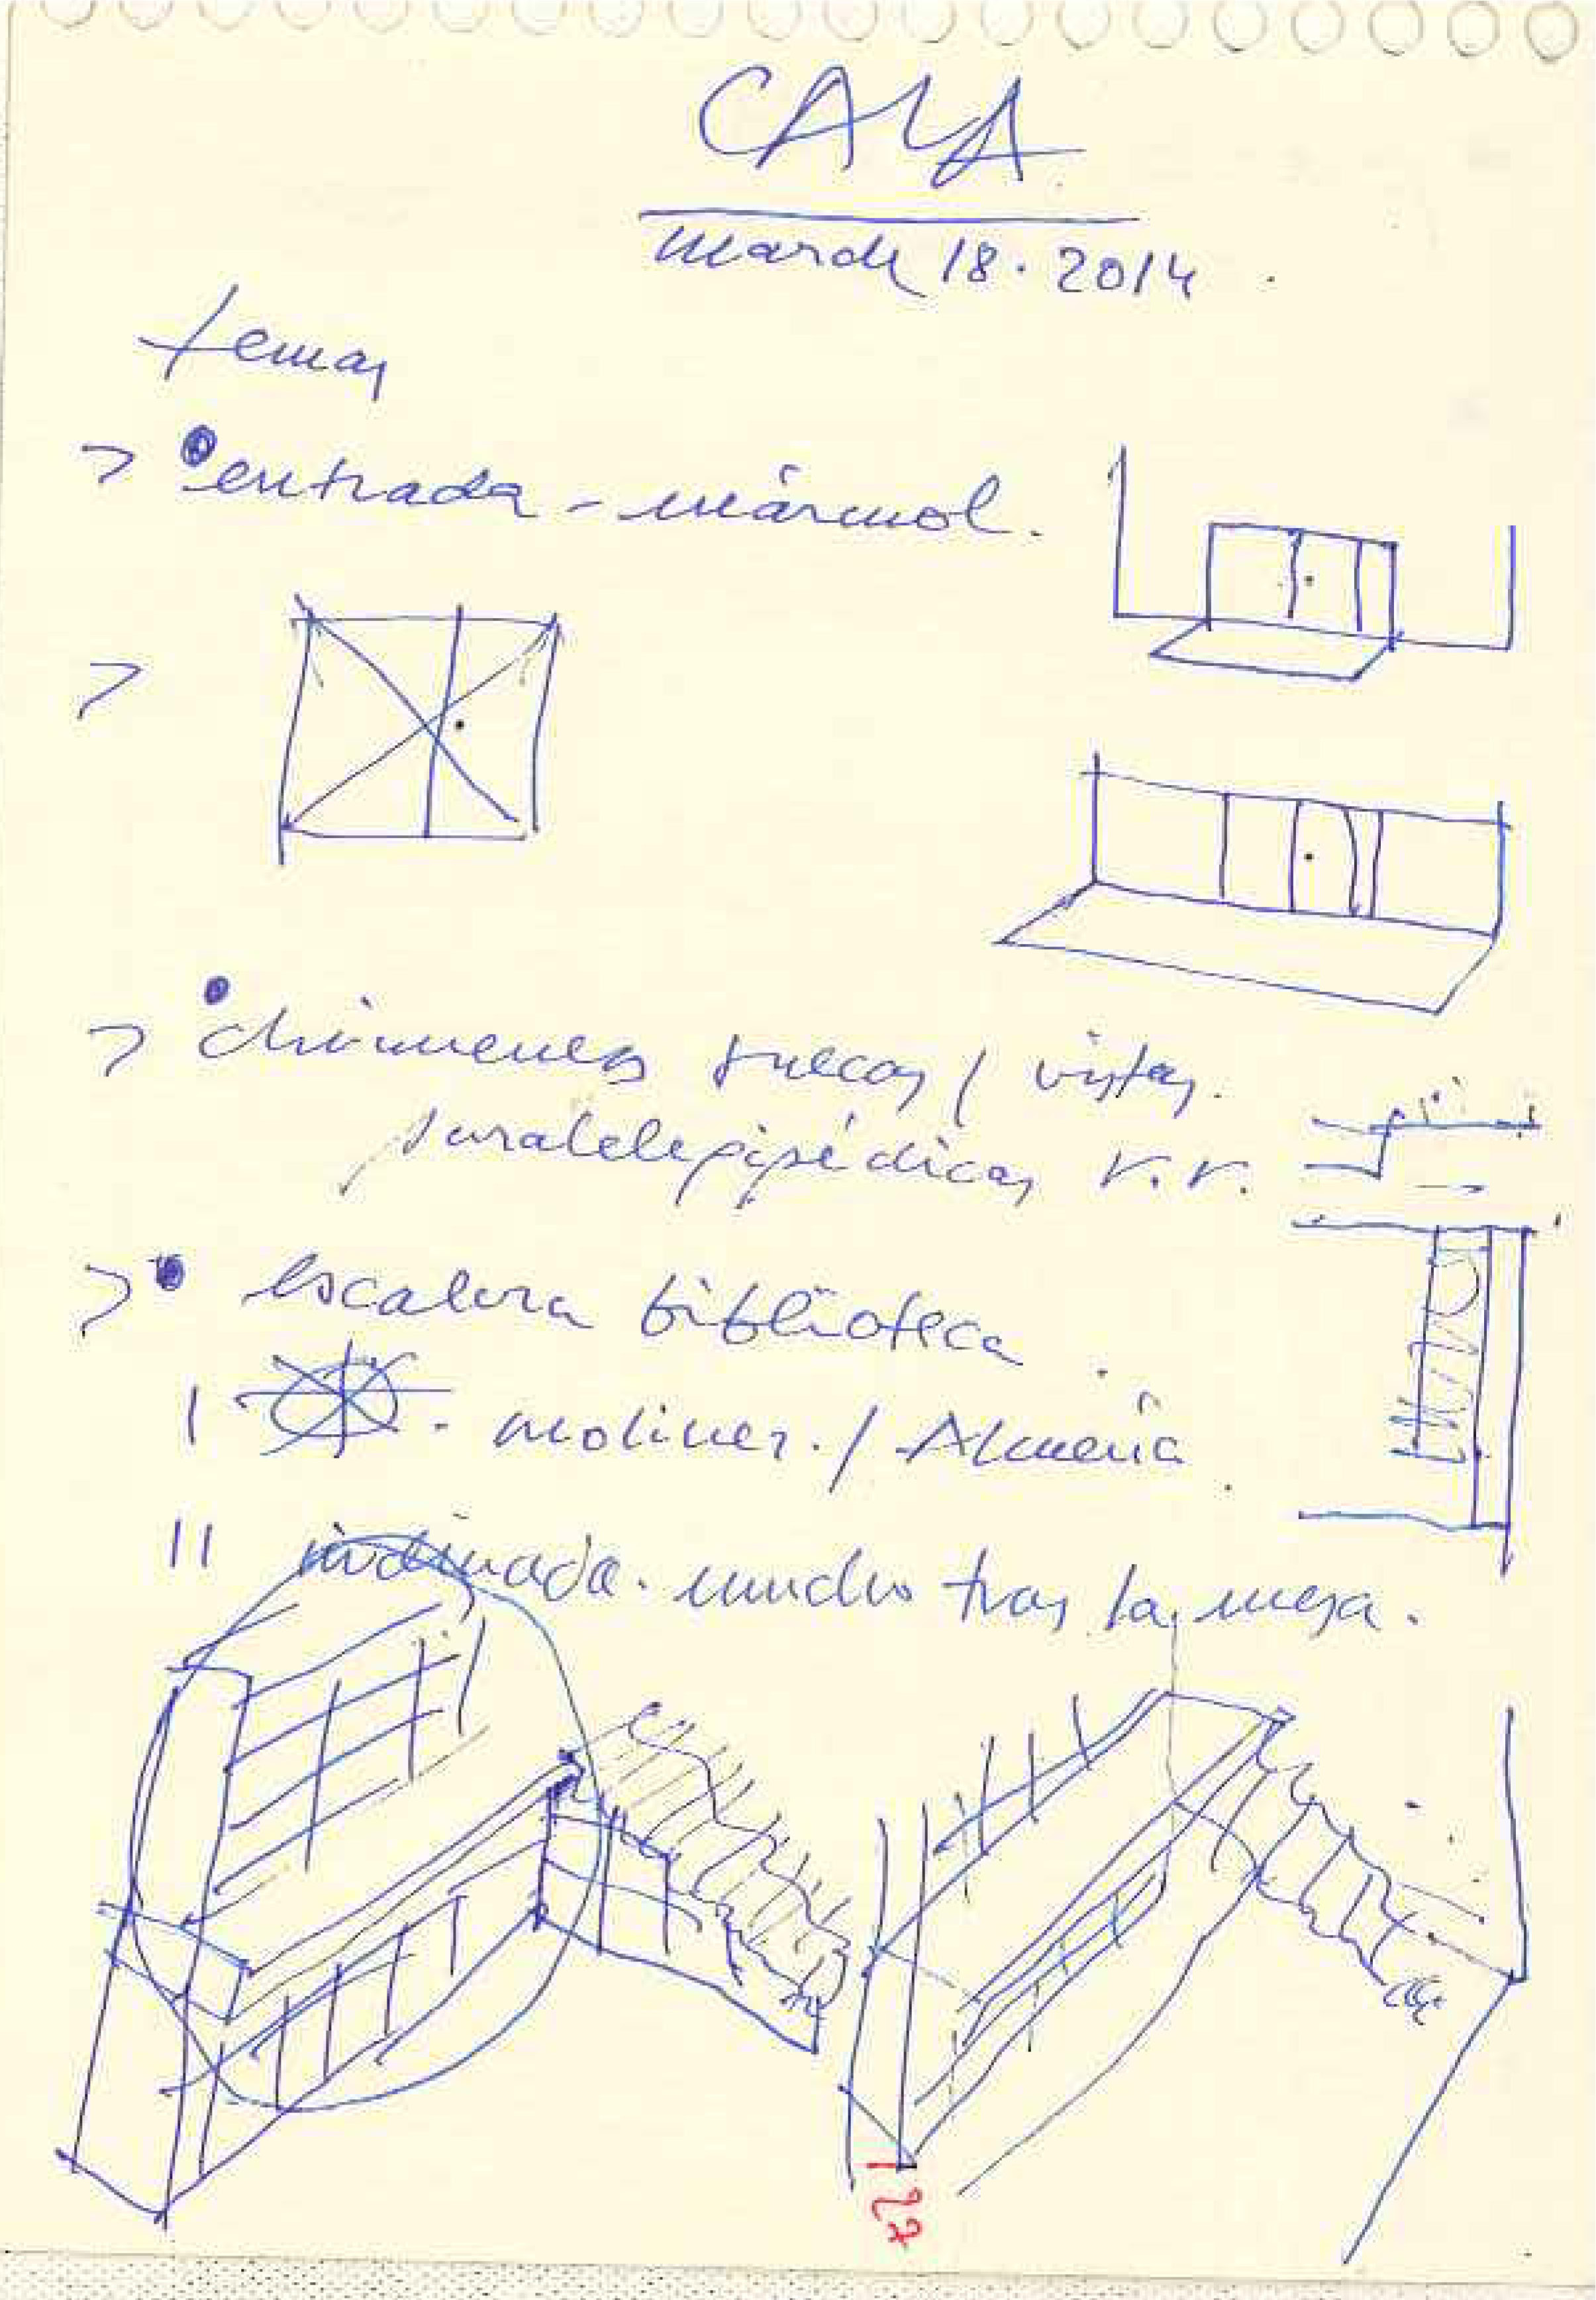 CALA
March 18. 2014
temas
> • entrada - mármol.
>
> • chimeneas huecas / vistas.
paralelepipédicas V.V.
> • escalera biblioteca
I - moliner. / Almería
II inclinada. mucho tras la mesa.